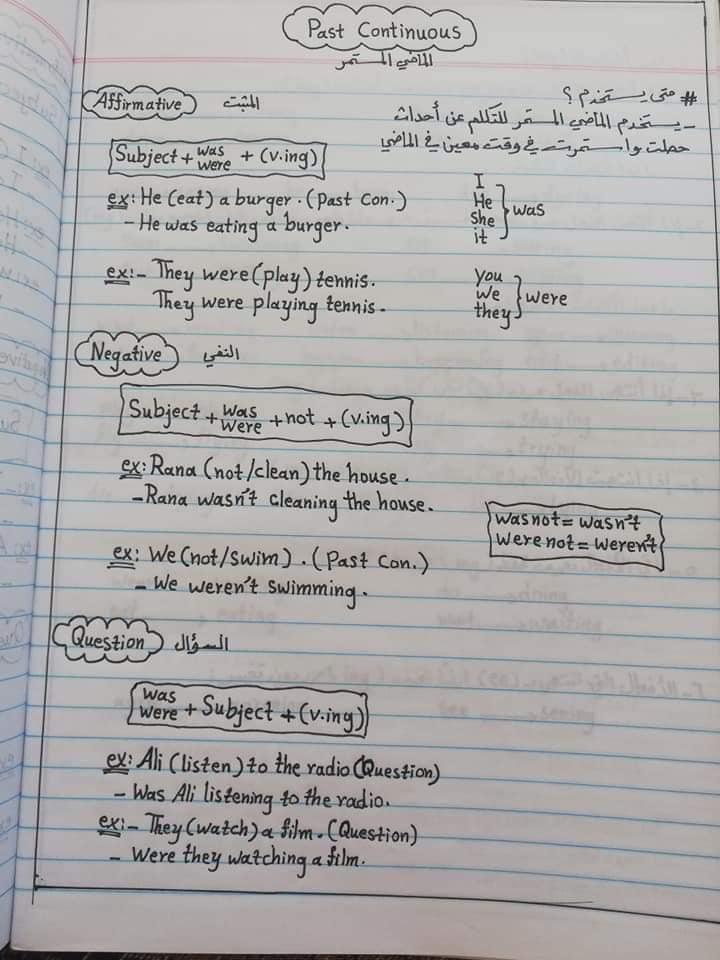 Past Continuous
الماضي المستمر
# متى يستخدم ؟
- يستخدم الماضي المستمر للتكلم عن أحداث
حصلت واستمرت في وقت معين في الماضي
Affirmative المثبت
Subject + was / were + (v.ing)
ex: He (eat) a burger. (Past Con.)
- He was eating a burger.
I
He
She
it
was
ex:- They were (play) tennis.
They were playing tennis.
you
we
they
were
Negative النفي
Subject + was / were + not + (v.ing)
ex: Rana (not/clean) the house.
- Rana wasn't cleaning the house.
was not = wasn't
were not = weren't
ex: We (not/swim). (Past Con.)
- We weren't swimming.
Question السؤال
was / were + Subject + (v.ing)
ex: Ali (listen) to the radio (Question)
- Was Ali listening to the radio.
ex:- They (watch) a film. (Question)
- Were they watching a film.